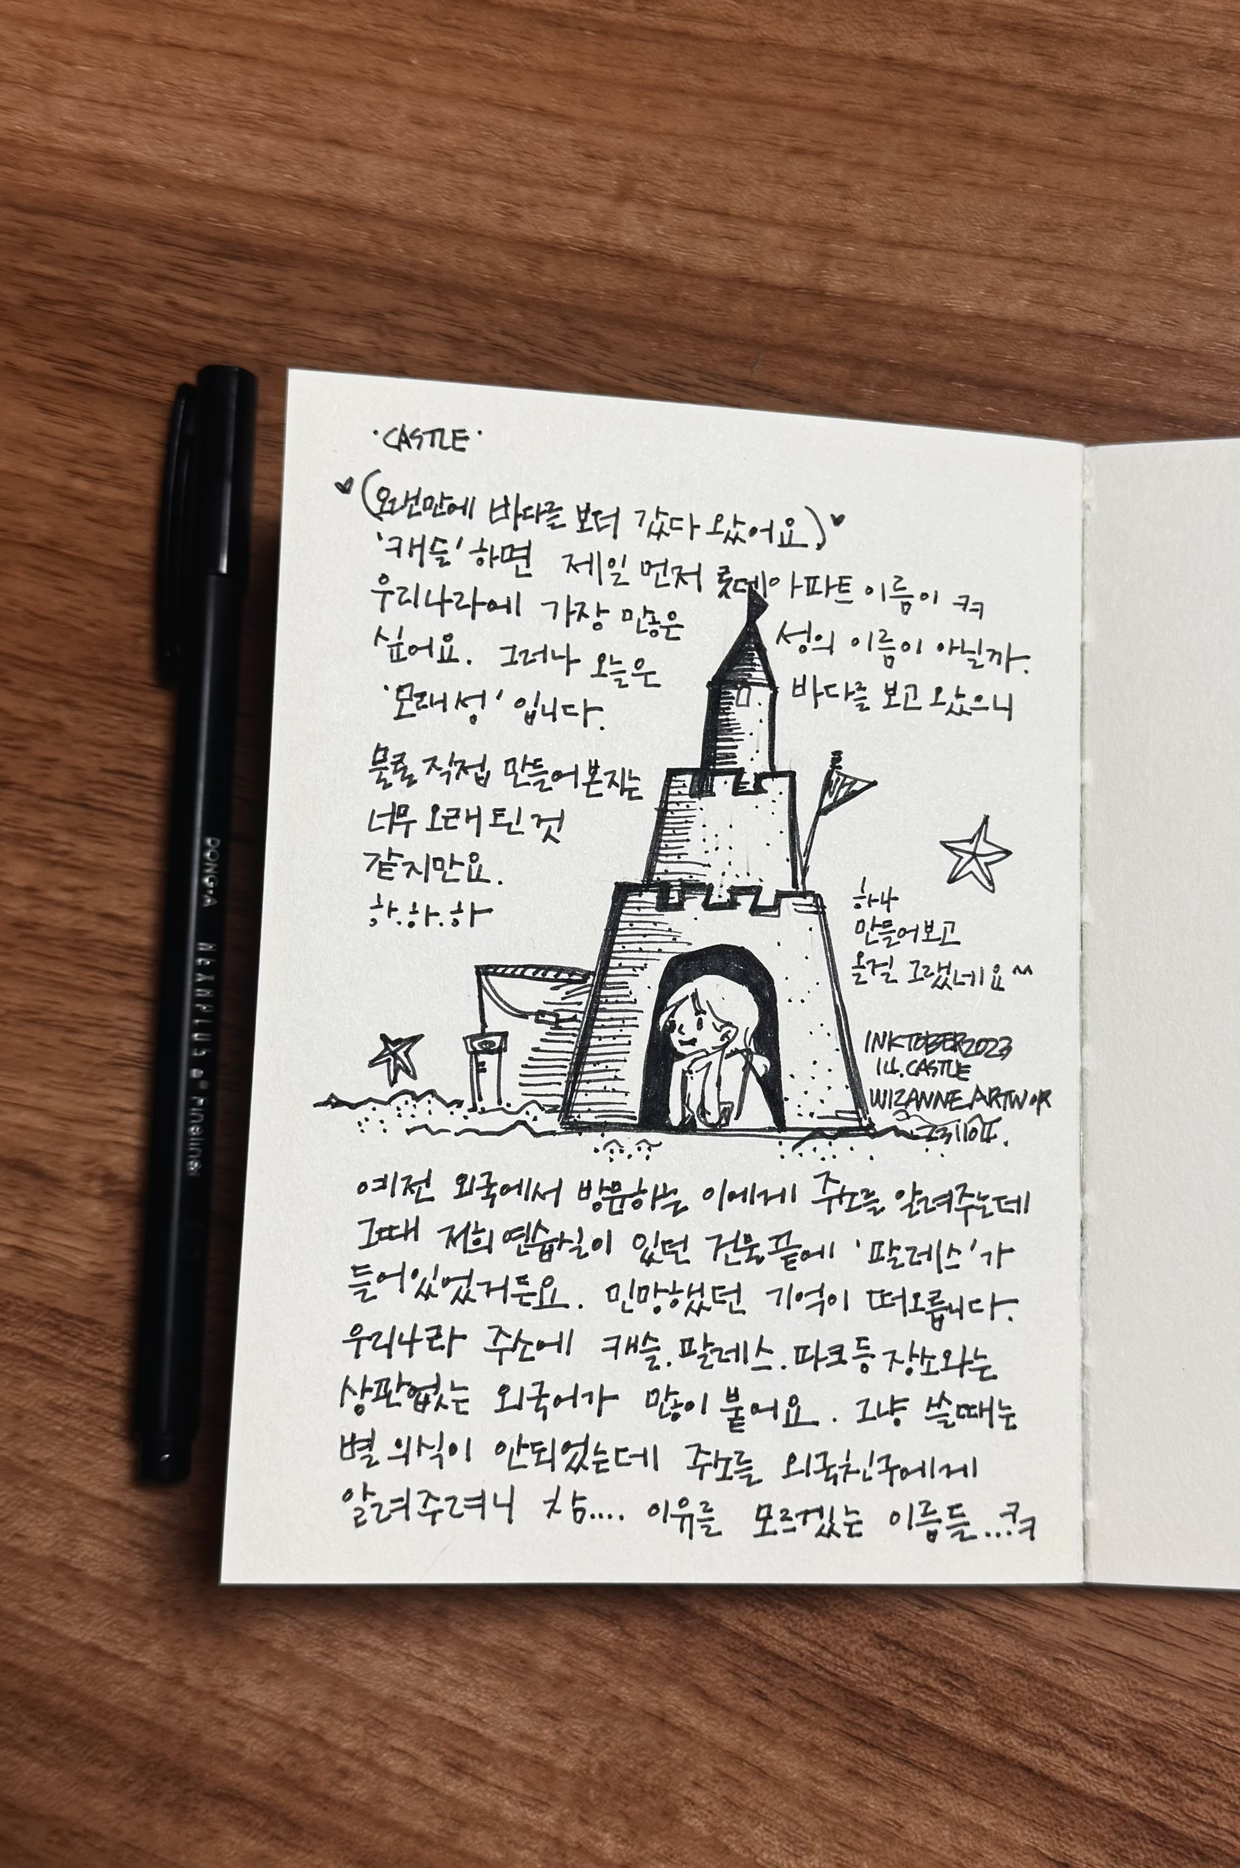 ·CASTLE·
♥(오랜만에 바다를 보러 갔다 왔어요.)♥
'캐슬'하면 제일 먼저 롯데아파트 이름이 ㅋㅋ
우리나라에 가장 많은 성의 이름이 아닐까.
싶어요. 그러나 오늘은 바다를 보고 왔으니
'모래성' 입니다.
물론 직접 만들어본지는
너무 오래 된 것
같지만요.
하.하.하
하나
만들어보고
올걸 그랬네요^^
INKTOBER2023
14. CASTLE
WIZANNE.ARTWORK
예전 외국에서 방문하는 이에게 주소를 알려주는데
그때 저희 연습실이 있던 건물 끝에 '팔레스'가
들어있었거든요. 민망했던 기억이 떠오릅니다.
우리나라 주소에 캐슬.팔레스.파크 등 장소와는
상관없는 외국어가 많이 붙어요. 그냥 쓸때는
별 의식이 안되었는데 주소를 외국친구에게
알려주려니 참.... 이유를 모르겠는 이름들...ㅋㅋ
DONG-A NEXPLUS Fineliner